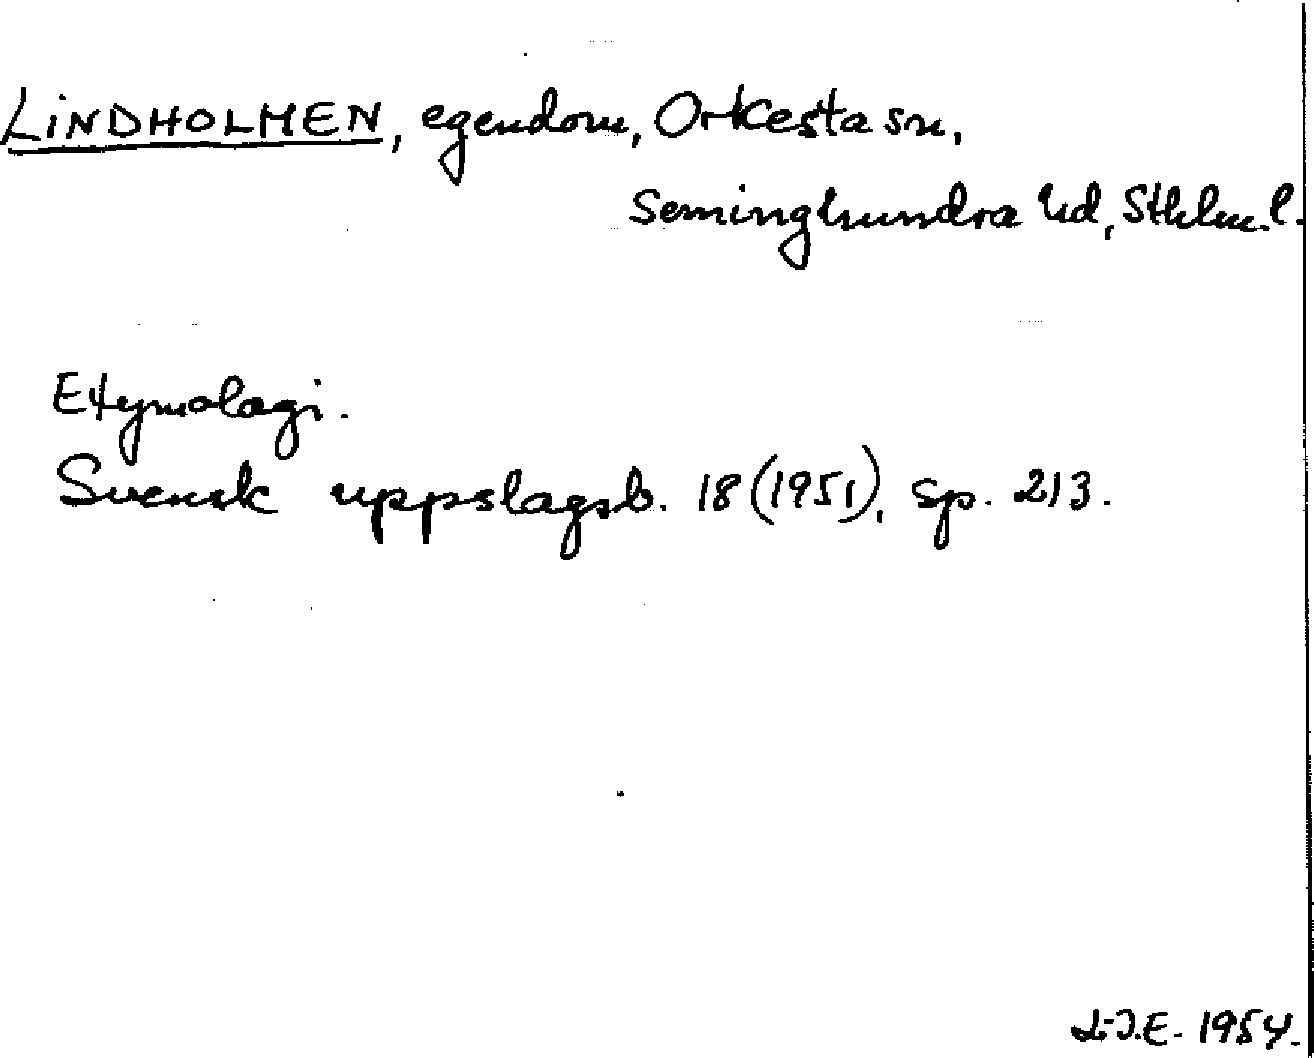 LINDHOLMEN, egendom, Orkesta sn,
Seminghundra hd, Sthlm. l.
Etymologi.
Svensk uppslagsb. 18 (1951), sp. 213.
L-J.E. 1954.